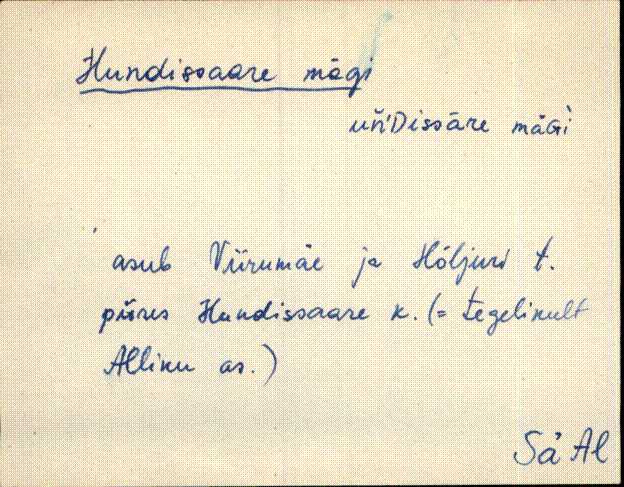 Hundissaare mägi
uń'Dissāre mäGi
asub Viirumäe ja Hõljuri t.
piires Hundissaare k. (= tegelikult
Alliku as.)
Sa' Al